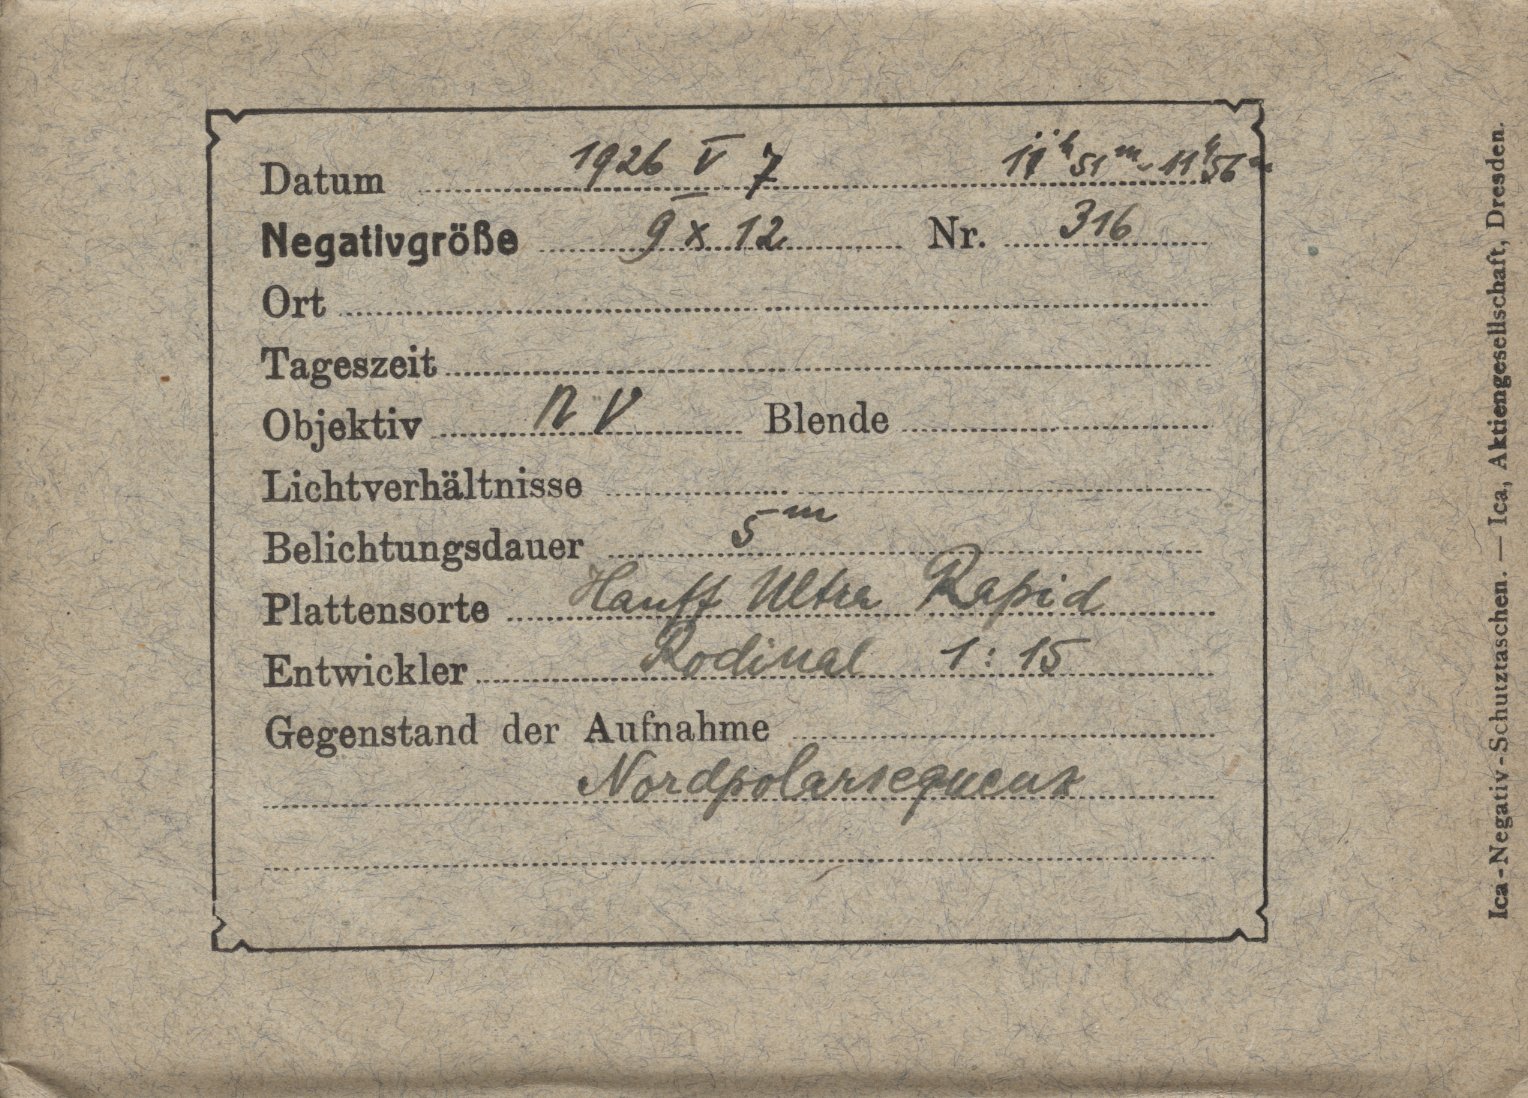 Datum 1926 V 7 11h 51m - 11h 56m
Negativgröße 9 x 12 Nr. 316
Ort
Tageszeit
Objektiv n V Blende
Lichtverhältnisse
Belichtungsdauer 5m
Plattensorte Hauff Ultra Rapid
Entwickler Rodinal 1 : 15
Gegenstand der Aufnahme
Nordpolarsequenz
Ica-Negativ-Schutztaschen. — Ica, Aktiengesellschaft, Dresden.